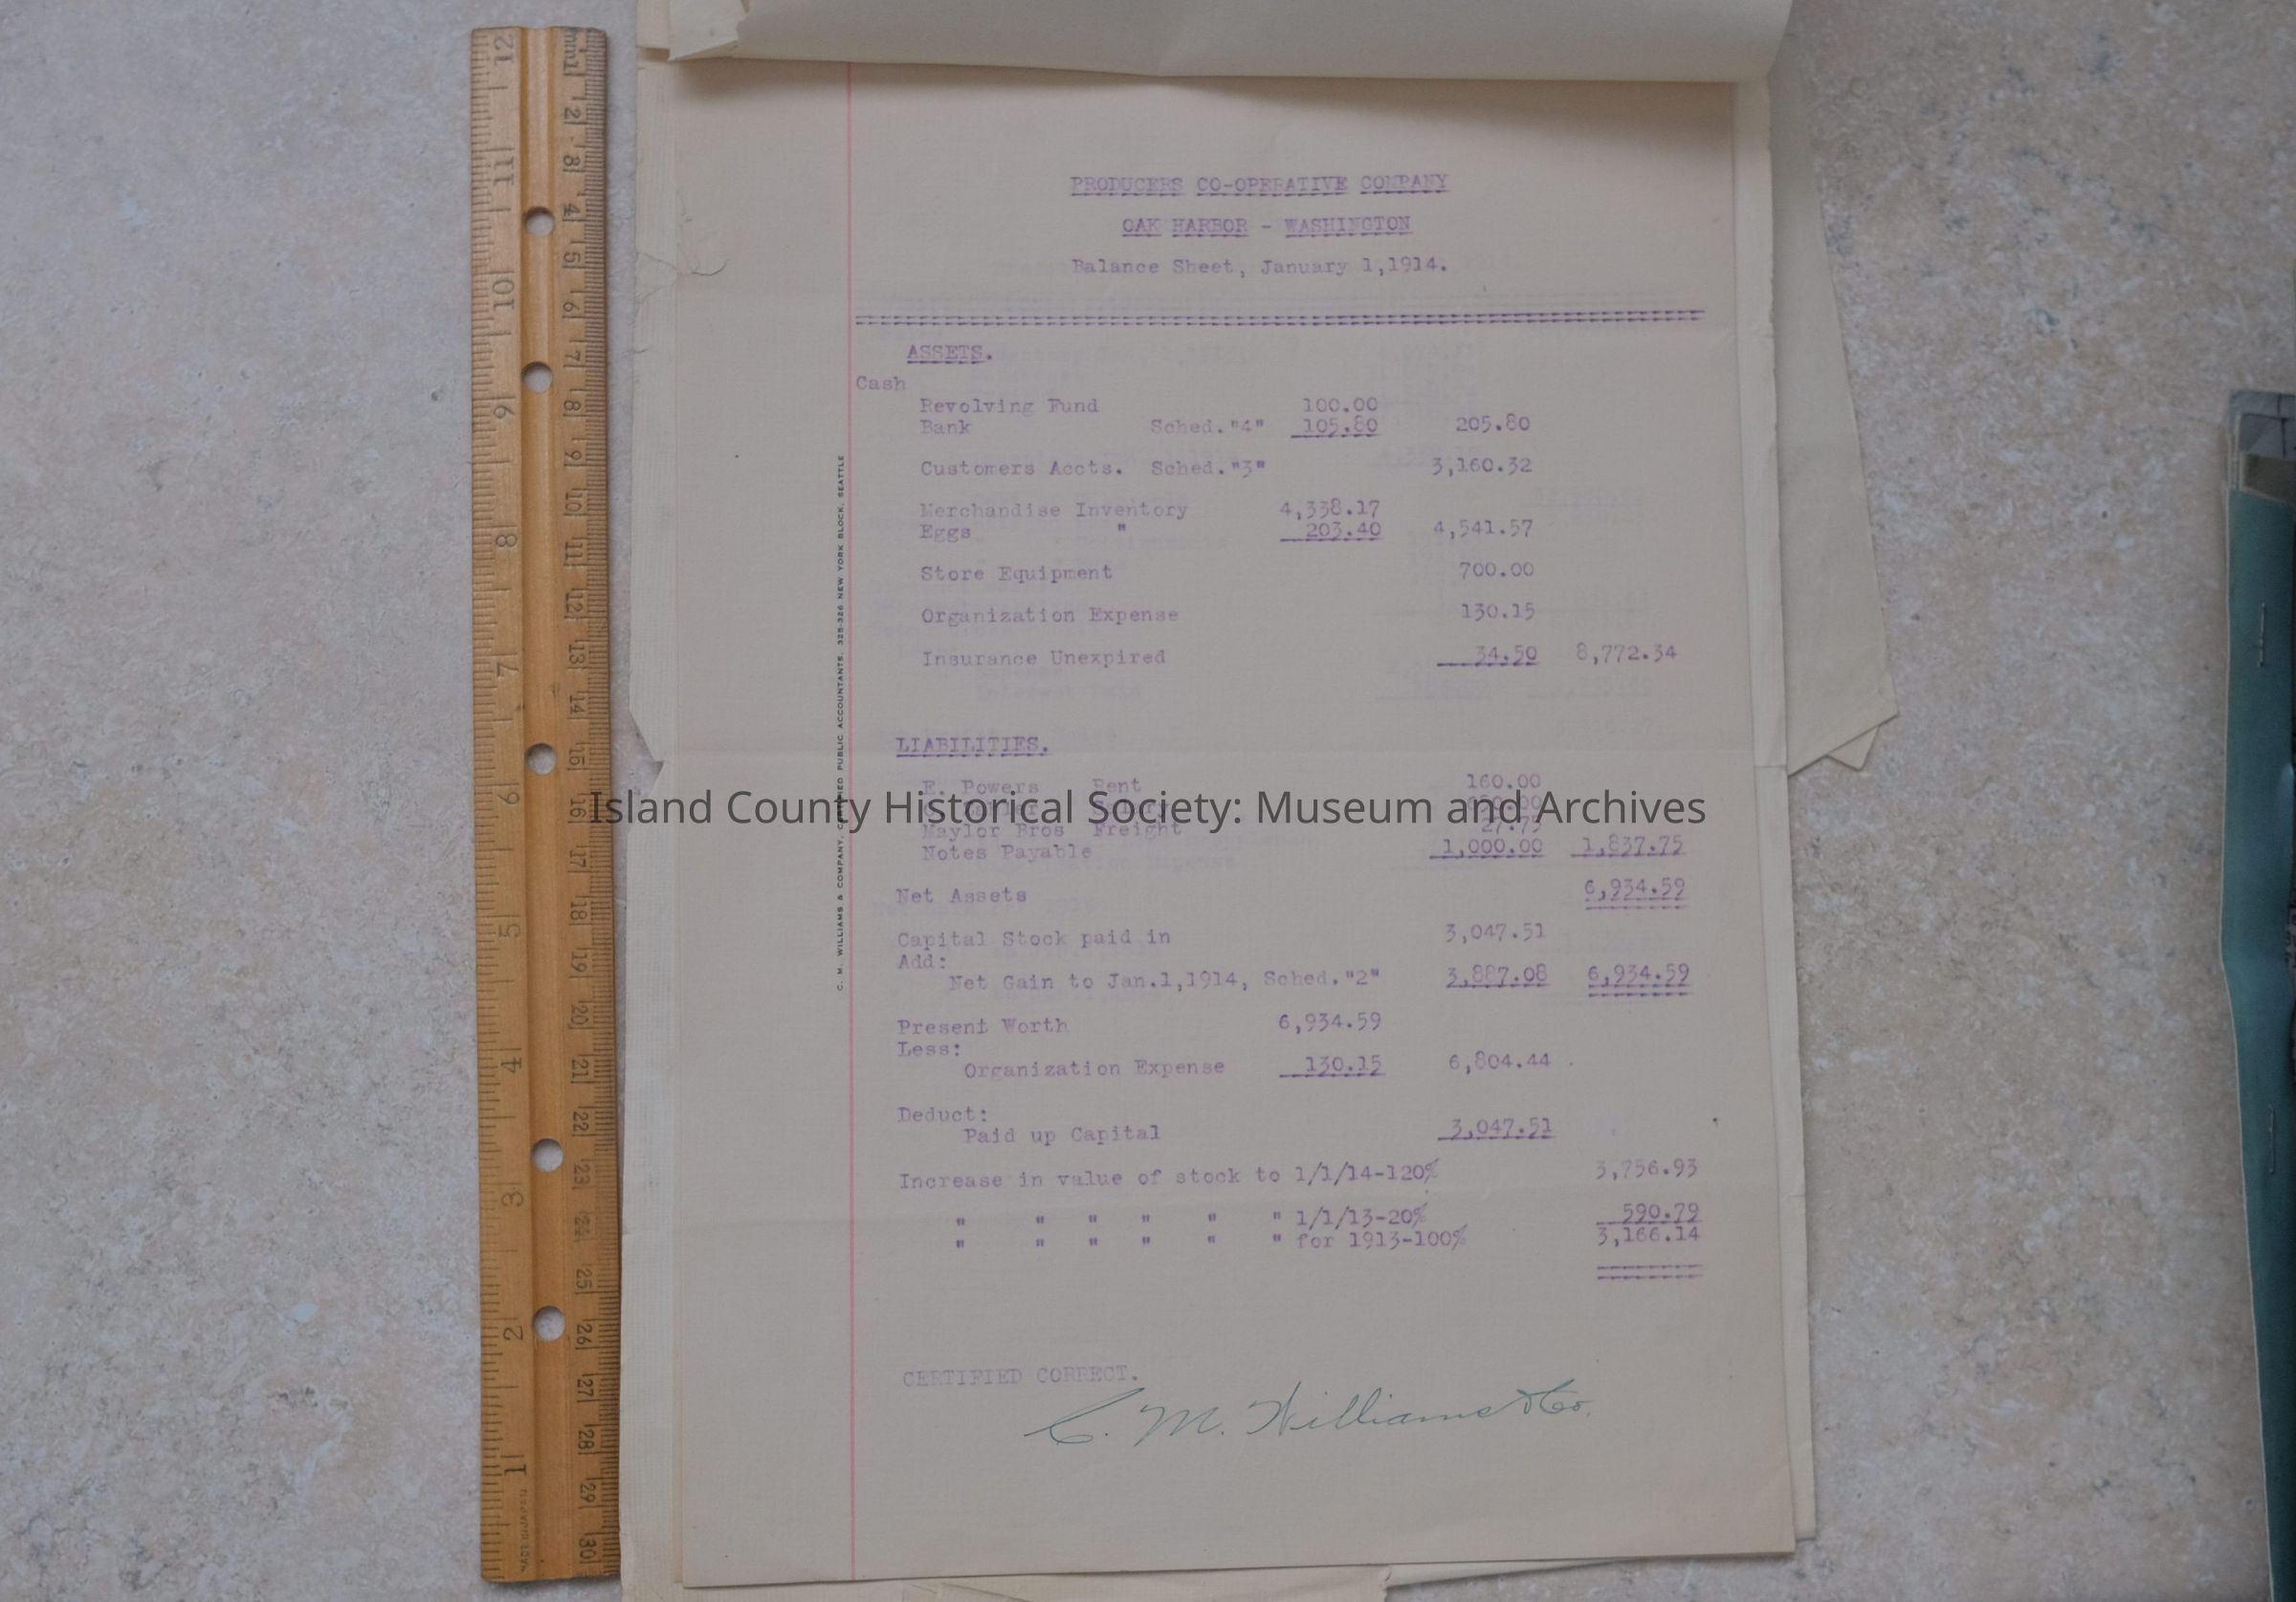 PRODUCERS CO-OPERATIVE COMPANY
OAK HARBOR - WASHINGTON
Balance Sheet, January 1,1914.
ASSETS.
Cash
Revolving Fund 100.00
Bank Sched."4" 105.80 205.80
Customers Accts. Sched."3" 3,160.32
Merchandise Inventory 4,338.17
Eggs " 203.40 4,541.57
Store Equipment 700.00
Organization Expense 130.15
Insurance Unexpired 34.50 8,772.34
LIABILITIES.
E. Powers Rent 160.00
Island County Historical Society: Museum and Archives
Maylor Bros Freight 27.75
Notes Payable 1,000.00 1,837.75
Net Assets 6,934.59
Capital Stock paid in 3,047.51
Add:
Net Gain to Jan.1,1914, Sched."2" 3,887.08 6,934.59
Present Worth 6,934.59
Less:
Organization Expense 130.15 6,804.44
Deduct:
Paid up Capital 3,047.51
Increase in value of stock to 1/1/14-120% 3,756.93
" " " " " " 1/1/13-20% 590.79
" " " " " " for 1913-100% 3,166.14
CERTIFIED CORRECT.
C. M. Williams & Co.
C. M. WILLIAMS & COMPANY, CERTIFIED PUBLIC ACCOUNTANTS, 325-326 NEW YORK BLOCK, SEATTLE
12 11 10 9 8 7 6 5 4 3 2 1
mm 1 2 3 4 5 6 7 8 9 10 11 12 13 14 15 16 17 18 19 20 21 22 23 24 25 26 27 28 29 30
MADE IN JAPAN